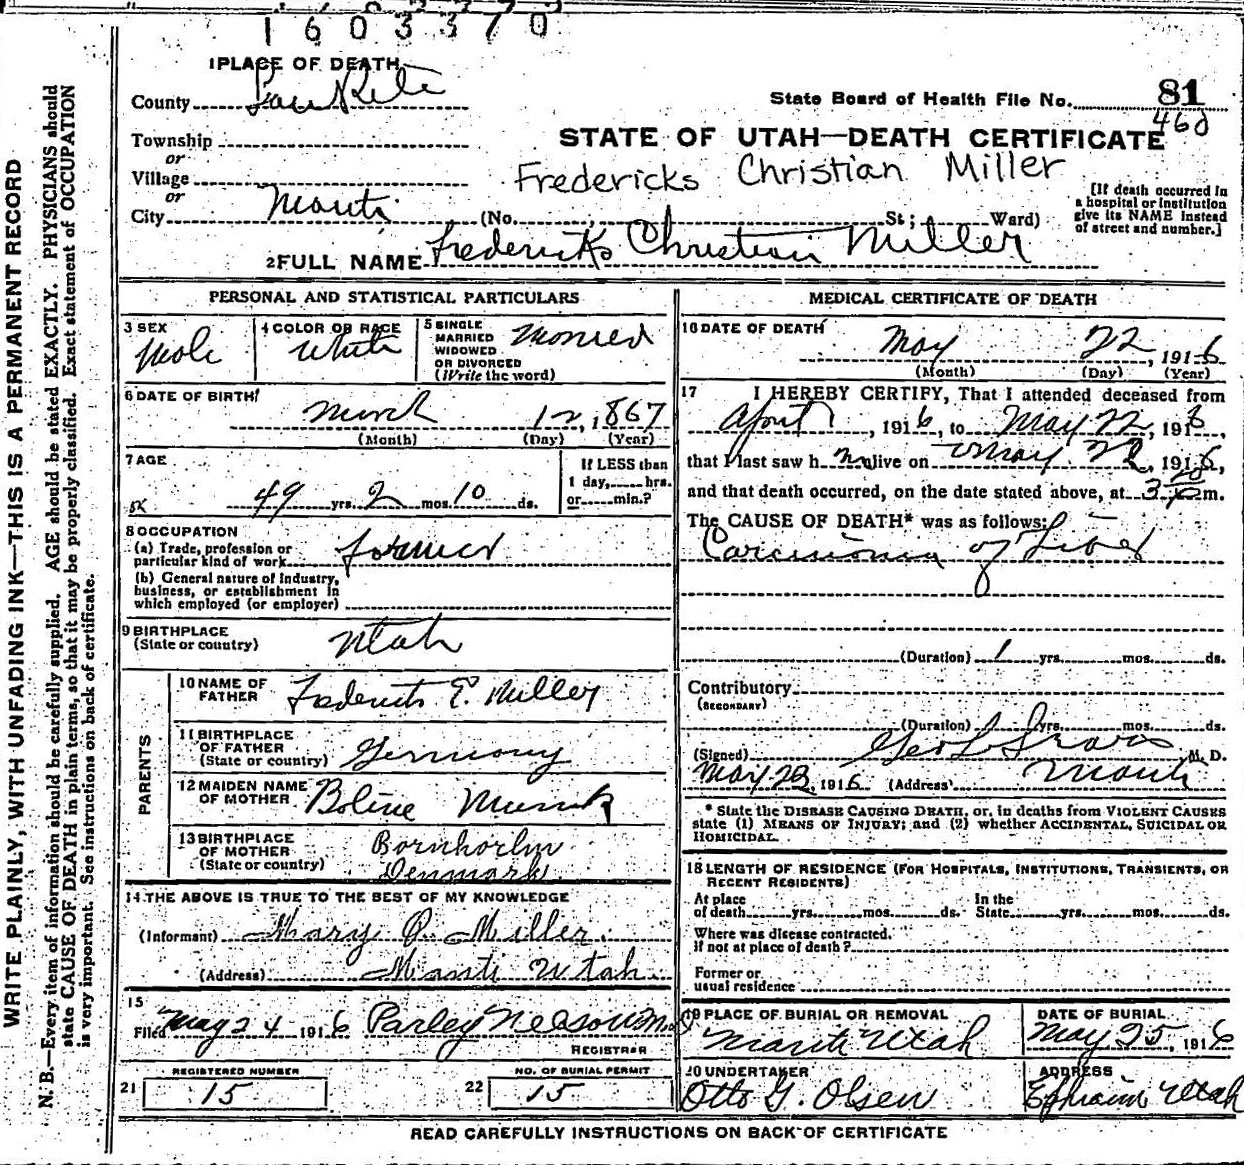 1603370
1 PLACE OF DEATH
County SanPete
State Board of Health File No. 81
460
Township
or
Village
or
City Manti (No. St; Ward)
STATE OF UTAH—DEATH CERTIFICATE
Fredericks Christian Miller
[If death occurred in
a hospital or institution
give its NAME instead
of street and number.]
2 FULL NAME Fredericks Christian Miller
PERSONAL AND STATISTICAL PARTICULARS
3 SEX Male
4 COLOR OR RACE White
5 SINGLE
MARRIED
WIDOWED
OR DIVORCED
(Write the word) Married
6 DATE OF BIRTH
March 12, 1867
(Month) (Day) (Year)
7 AGE
49 yrs. 2 mos. 10 ds.
If LESS than
1 day, hrs.
or min.?
8 OCCUPATION
(a) Trade, profession or
particular kind of work farmer
(b) General nature of industry,
business, or establishment in
which employed (or employer)
9 BIRTHPLACE
(State or country) Utah
PARENTS
10 NAME OF
FATHER E. Miller
11 BIRTHPLACE
OF FATHER
(State or country) Germany
12 MAIDEN NAME
OF MOTHER Boline Munk
13 BIRTHPLACE
OF MOTHER
(State or country) Bornhorlm
Denmark
14 THE ABOVE IS TRUE TO THE BEST OF MY KNOWLEDGE
(Informant) Mary Miller
(Address) Manti Utah
15
Filed May 24 1916 Parley Nelson
REGISTRAR
REGISTERED NUMBER
21 15
NO. OF BURIAL PERMIT
22 15
MEDICAL CERTIFICATE OF DEATH
16 DATE OF DEATH
May 22, 1916
(Month) (Day) (Year)
17 I HEREBY CERTIFY, That I attended deceased from
April 1, 1916, to May 22, 191
that I last saw h m alive on May 22, 1916,
and that death occurred, on the date stated above, at 3 m.
The CAUSE OF DEATH* was as follows:
Carcinoma of Liver
(Duration) 1 yrs. mos. ds.
Contributory
(SECONDARY)
(Duration) yrs. mos. ds.
(Signed) Geo L M. D.
May 23, 1916 (Address) Manti
* State the DISEASE CAUSING DEATH, or, in deaths from VIOLENT CAUSES
state (1) MEANS OF INJURY; and (2) whether ACCIDENTAL, SUICIDAL OR
HOMICIDAL.
18 LENGTH OF RESIDENCE (FOR HOSPITALS, INSTITUTIONS, TRANSIENTS, OR
RECENT RESIDENTS)
At place
of death yrs. mos. ds.
In the
State yrs. mos. ds.
Where was disease contracted.
if not at place of death?
Former or
usual residence
19 PLACE OF BURIAL OR REMOVAL
Manti Utah
DATE OF BURIAL
May 25, 1916
20 UNDERTAKER
Otto G. Olsen
ADDRESS
Ephraim Utah
READ CAREFULLY INSTRUCTIONS ON BACK OF CERTIFICATE
WRITE PLAINLY, WITH UNFADING INK—THIS IS A PERMANENT RECORD
N. B.—Every item of information should be carefully supplied. AGE should be stated EXACTLY. PHYSICIANS should
state CAUSE OF DEATH in plain terms, so that it may be properly classified. Exact statement of OCCUPATION
is very important. See instructions on back of certificate.